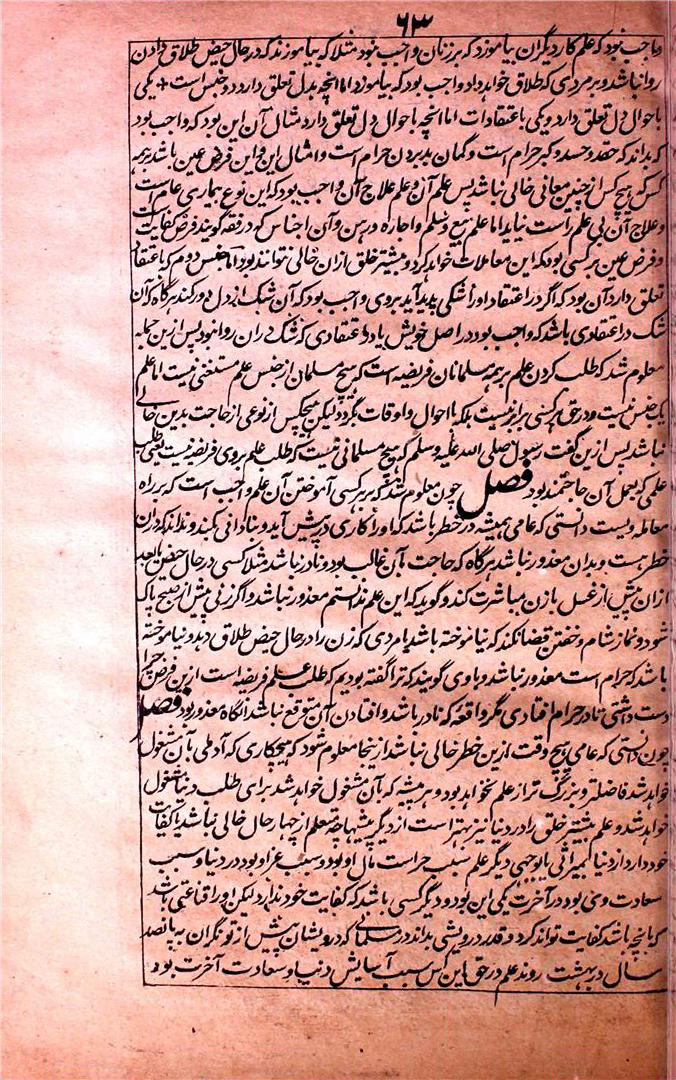 ۶۳
واجب نبود که علم کار دیگران بیاموزد که بر زنان واجب نبود مثلا که بیاموزند که در حال حیض طلاق دادن
روا نباشد و بر مردی که طلاق خواهد داد واجب بود که بیاموزد اما آنچه بدل تعلق دارد دو جنس است + یکی
باحوال دل تعلق دارد و یکی باعتقادات اما آنچه باحوال دل تعلق دارد مثال آن این بود که واجب بود
که بداند که حقد و حسد و کبر حرام است و گمان بد بردن حرام است و امثال این و این فرض عین باشد بر همه
کس که هیچکس از چنین معانی خالی نباشد پس علم آن و علم علاج آن واجب بود که این نوع بیماری عام است
و علاج آن بی علم راست نیاید اما علم بیع و سلم و اجاره و رهن و آن اجناس که در فقه گویند فرض کفایت است
و فرض عین بر کسی بود که این معاملات خواهد کرد و بیشتر خلق از ان خالی نتوانند بود اما جنس دوم که باعتقاد
تعلق دارد آن بود که اگر در اعتقاد او را شکی پدید آید بروی واجب بود که آن شک از دل دور کند هرگاه که آن
شک در اعتقادی باشد که واجب بود در اصل خویش یا در اعتقادی که شک در ان روا نبود پس از ین جمله
معلوم شد که طلب کردن علم بر همه مسلمانان فریضه است که هیچ مسلمان از جنس علم مستغنی نیست اما علم
یک جنس نیست و در حق هر کسی برابر نیست بلکه باحوال و اوقات بگردد لیکن هیچکس از نوعی از حاجت بدین خالی
نباشد پس ازین گفت رسول صلی الله علیه وسلم که هیچ مسلمانی نیست که طلب علم بروی فریضه نیست یعنی طلب
علمی که بعمل آن حاجتمند بود فصل چون معلوم شد که بر هر کسی آموختن آن علم واجب است که بر راه
معامله ویست دانستی که عامی همیشه در خطر باشد که او را کاری در پیش آید و بنادانی بکند و نداند که در ان
خطر هست و بدان معذور نباشد هرگاه که حاجت بآن غالب بود و نادر نباشد مثلا کسی در حال حیض یا بعد
از ان پیش از غسل با زن مباشرت کند و گوید که این علم ندانستم معذور نباشد و اگر زنی پیش از صبح پاک
شود و نماز شام و خفتن قضا نکند که نیاموخته باشد یا مردی که زن را در حال حیض طلاق دهد و نیاموخته
باشد که حرام است معذور نباشد و باوی گویند که ترا گفته بودیم که طلب علم فریضه است ازین فرض چرا
دست داشتی تا در حرام افتادی مگر واقعه که نادر باشد و افتادن آن متوقع نباشد آنگاه معذور بود فصل
چون دانستی که عامی هیچ وقت ازین خطر خالی نباشد از ینجا معلوم شود که هیچکاری که آدمی بآن مشغول
خواهد شد فاضلتر و بزرگ تر از علم نخواهد بود و هر پیشه که بآن مشغول خواهد شد برای طلب دنیا مشغول
خواهد شد و علم بیشتر خلق را در دنیا نیز بهتر است از دیگر پیشها چه متعلم از چهار حال خالی نباشد یا کفایت
خود دارد از دنیا بمیراثی یا بوجهی دیگر علم سبب حراست مال او بود و سبب عز او بود در دنیا و سبب
سعادت وی بود در آخرت یکی این بود و دیگر کسی باشد که کفایت خود ندارد لیکن او را قناعتی باشد
که بآنچه باشد کفایت تواند کرد و قدر درویشی بداند در مسلمانی که درویشان پیش از توانگران به پانصد
سال در بهشت روند علم در حق این کس سبب آسایش دنیا و سعادت آخرت بود